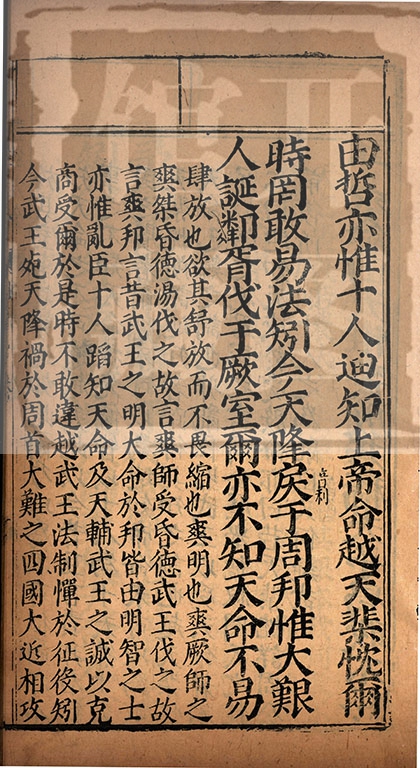 由哲亦惟十人迪知上帝命越天棐忱爾
時罔敢易法矧今天降戾音利于周邦惟大艱
人誕鄰胥伐于厥室爾亦不知天命不易
肆放也欲其舒放而不畏縮也爽明也爽厥師之
爽桀昏德湯伐之故言爽師受昏德武王伐之故
言爽邦言昔武王之明大命於邦皆由明智之士
亦惟亂臣十人蹈知天命及天輔武王之誠以克
商受爾於是時不敢違越武王法制憚於征役矧
今武王死天降禍於周首大難之四國大近相攻